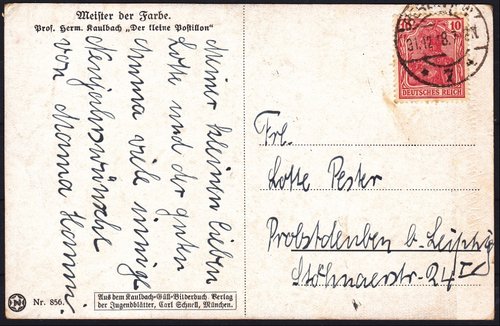 Meister der Farbe.
Prof. Herm. Kaulbach „Der kleine Postillon“
Meiner kleinen lieben
Lotte und der guten
Anna viele innige
Neujahrswünsche
von Mama Homm.
Nr. 856.
Aus dem Kaulbach-Güll-Bilderbuch Verlag
der Jugendblätter, Carl Schnell, München.
10
DEUTSCHES REICH
31.12.18.
7
Frl.
Lotte Pester
Probstdeuben b. Leipzig
24